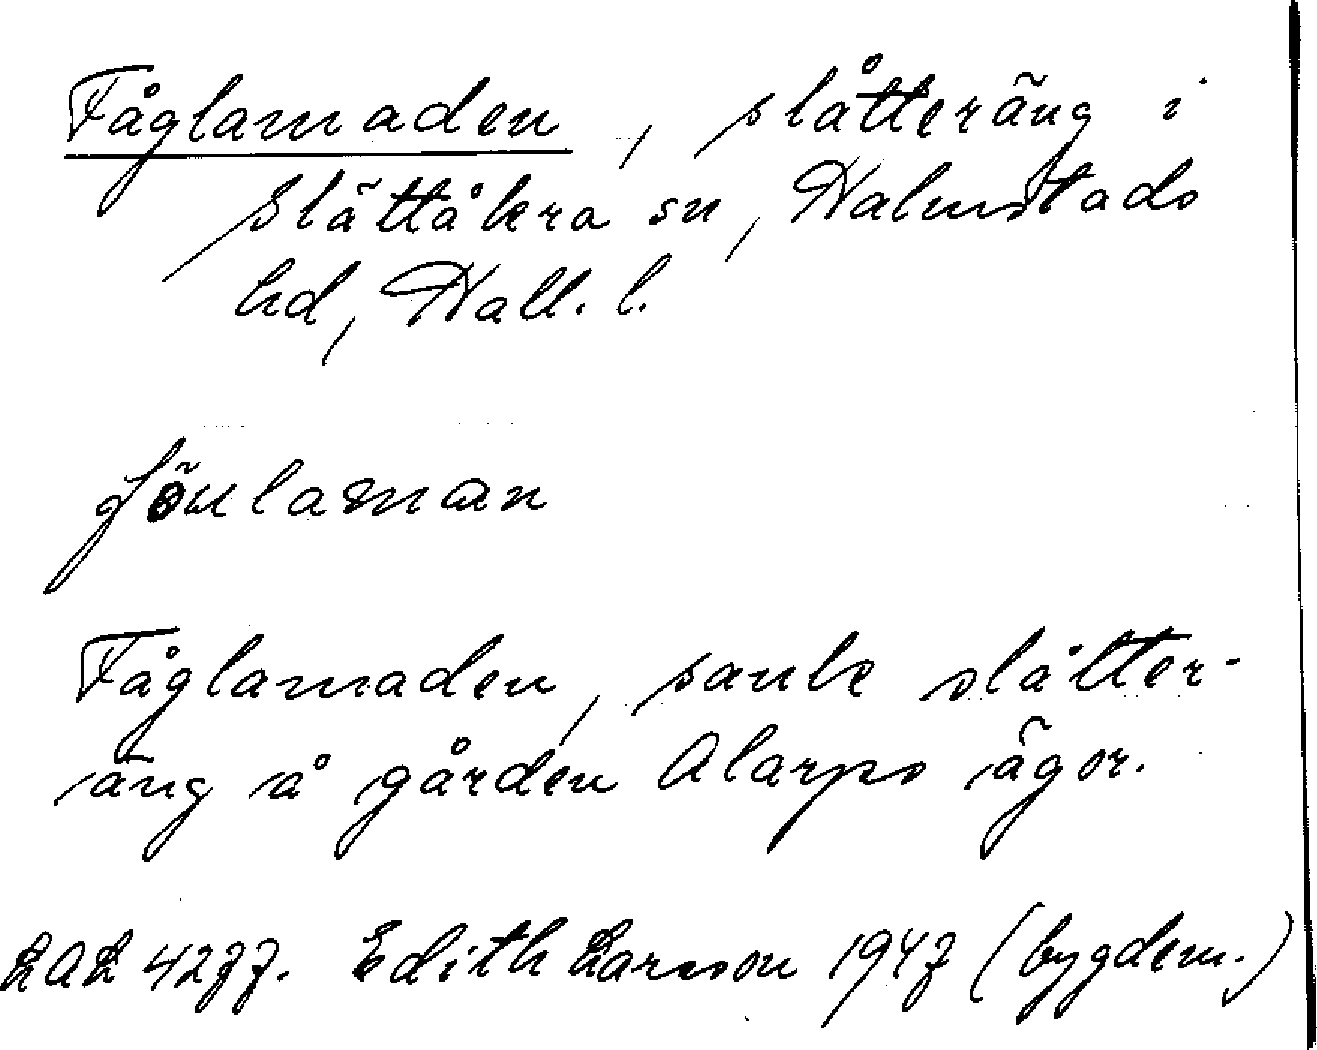 Fåglamaden, slåtteräng i
Slättåkra sn, Halmstads
hd, Hall. l.
föulaman
Fåglamaden, sank slåtter-
äng å gården Alarps ägor.
LAL 4277. Edith Larsson 1947 (bygdem.)